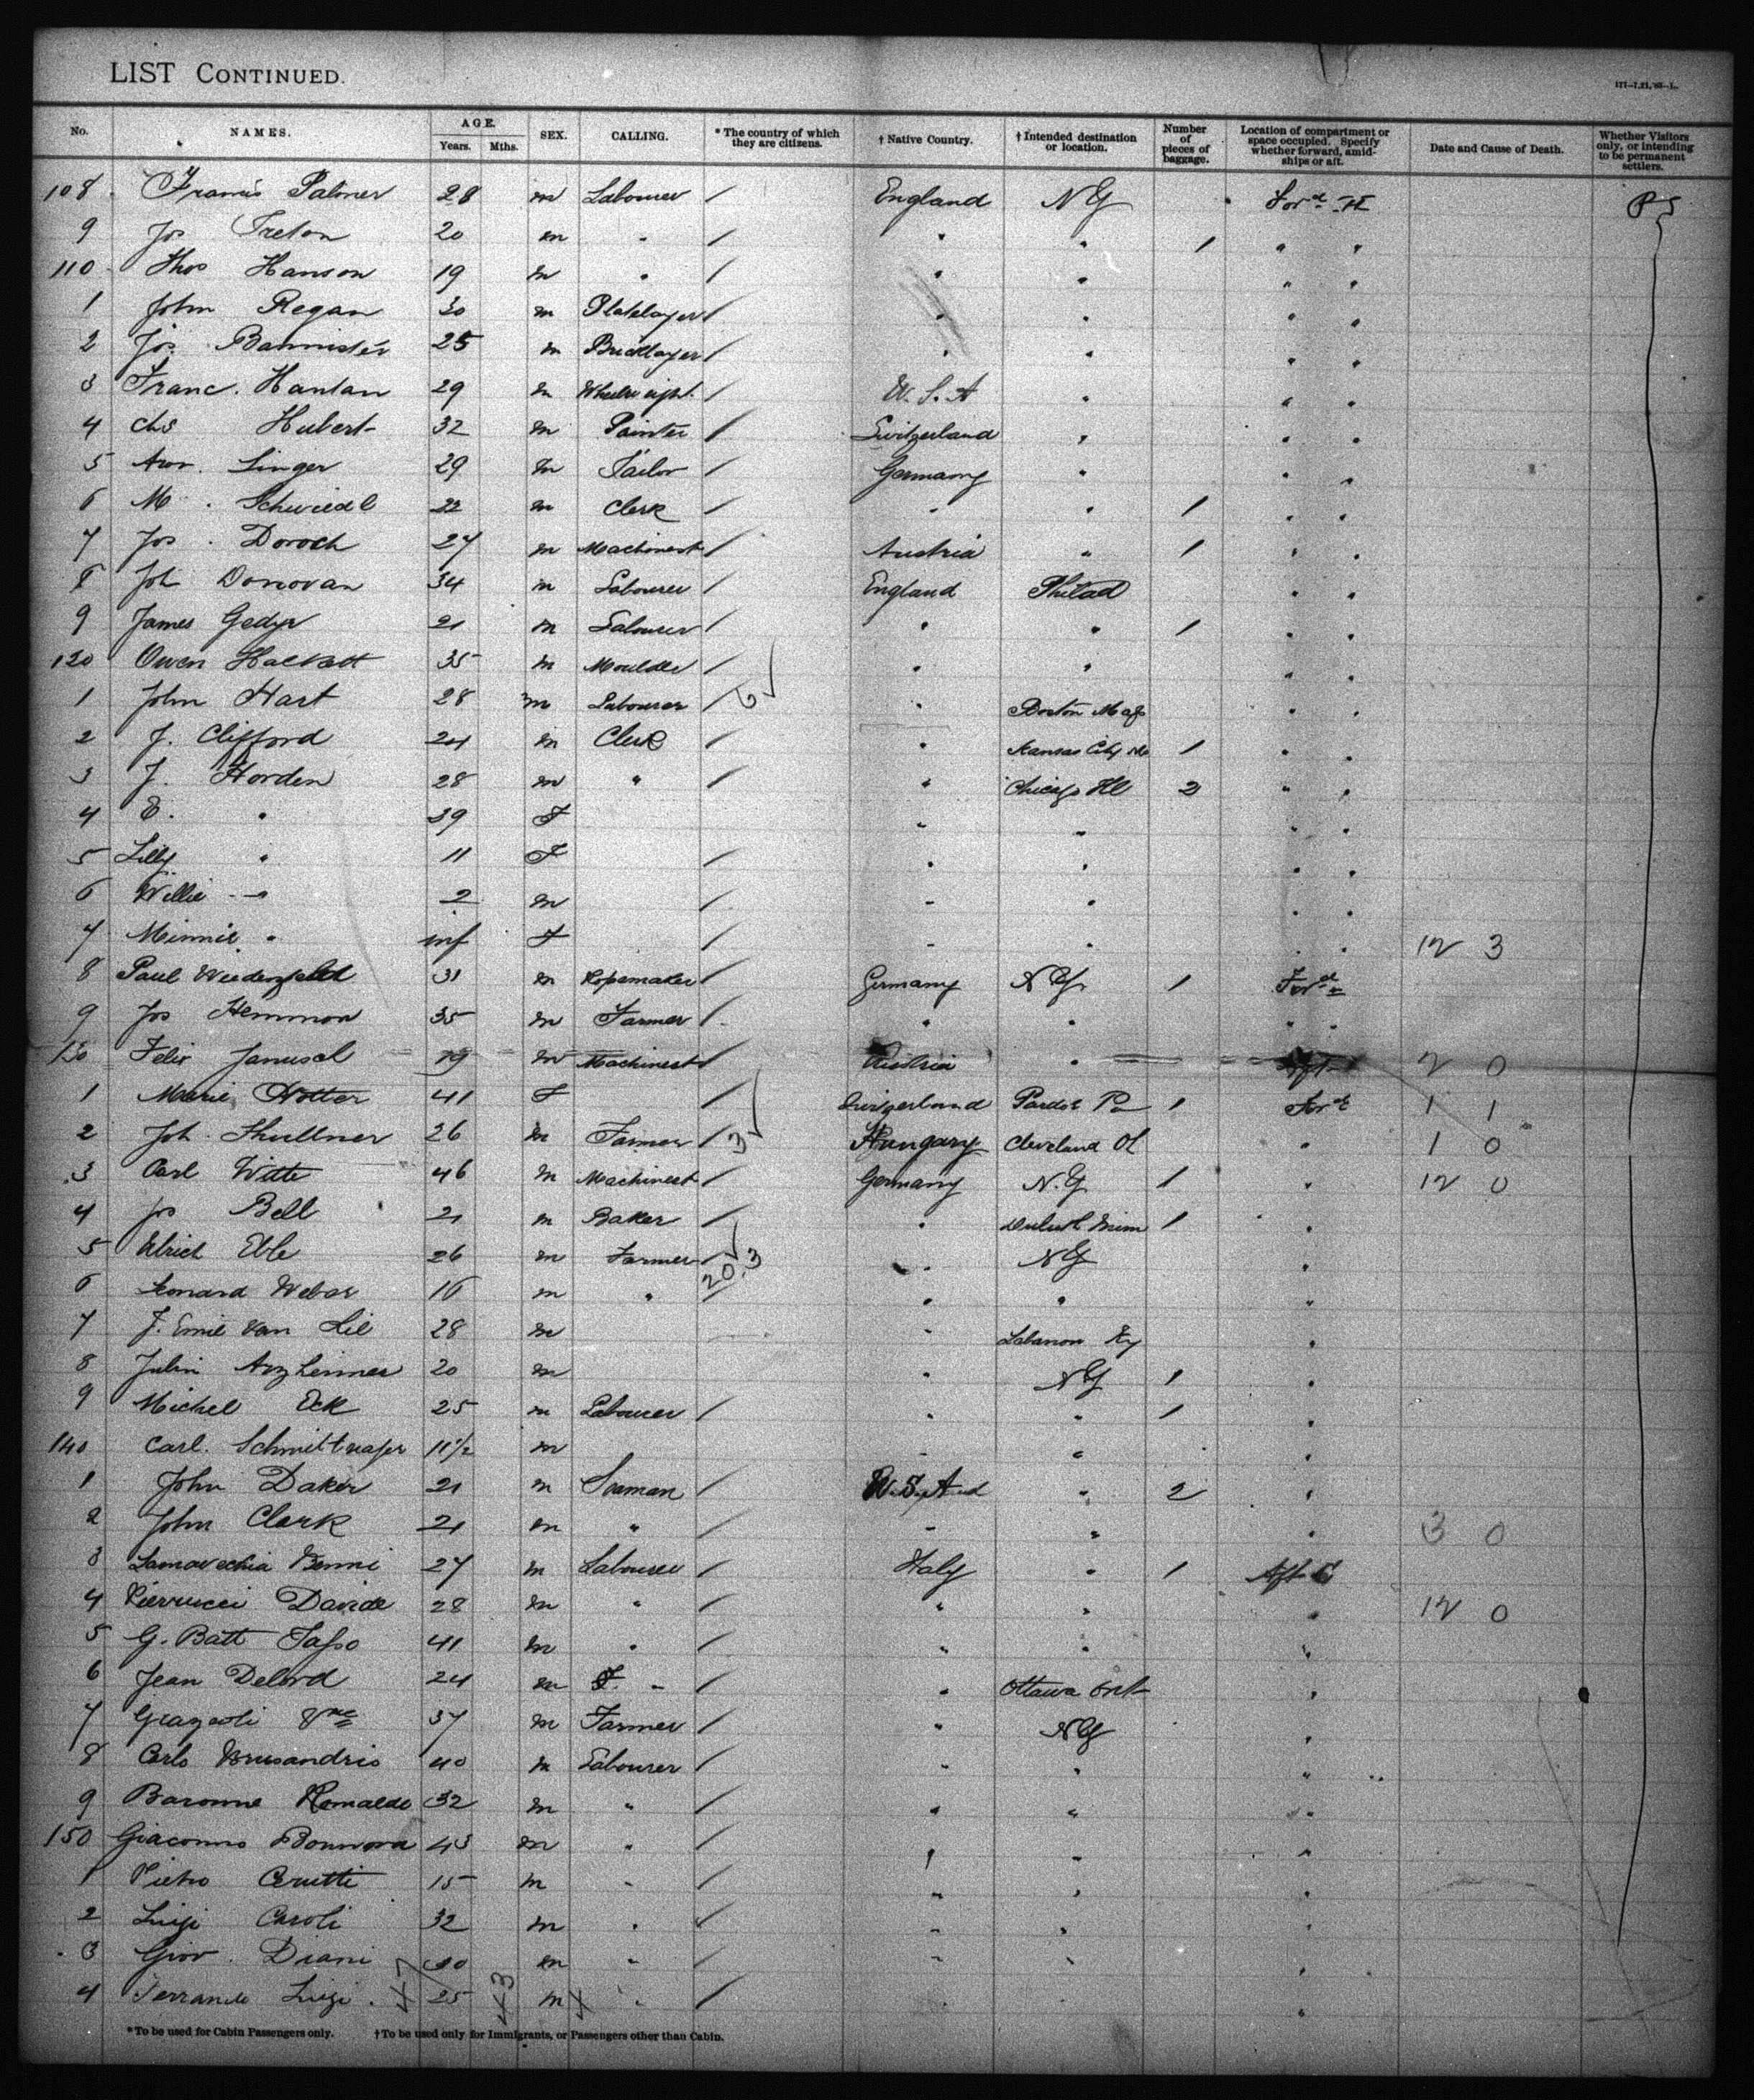 LIST CONTINUED.
No. NAMES. AGE. Years. Mths. SEX. CALLING. * The country of which they are citizens. † Native Country. † Intended destination or location. Number of pieces of baggage. Location of compartment or space occupied. Specify whether forward, amidships or aft. Date and Cause of Death. Whether Visitors only, or intending to be permanent settlers.
108 Francis Palmer 28 m Labourer / England NY Ford PS
9 Jos Treton 20 m " / " " 1 " "
110 Thos Hanson 19 m " / " " " "
1 John Regan 30 m Platelayer / " " " "
2 Jos. Bannister 25 m Bricklayer / " " " "
3 Franc. Hanlan 29 m Wheelwright / U.S.A " " "
4 Chs Hubert 32 m Painter / Switzerland " " "
5 Aur. Singer 29 m Tailor / Germany " " "
6 M. Schwiedl 22 m Clerk / " " 1 " "
7 Jos. Doroch 27 m Machinest / Austria " 1 " "
8 Joh Donovan 34 m Labourer / England Philad " "
9 James Gedyr 21 m Labourer / " " 1 " "
120 Owen Hackett 35 m Moulder / " " " "
1 John Hart 28 m Labourer / 6 " Boston Mass " "
2 J. Clifford 24 m Clerk / " Kansas City Mo 1 " "
3 J. Horden 28 m " / " Chicago Ill 2 " "
4 E. " 39 F " " " "
5 Lilly " 11 F / " " " "
6 Willie " 2 m / " " " "
7 Minnie " inf F / " " " " 12 3
8 Paul Wiedenfeld 31 m Ropemaker / Germany NY. 1 Ford
9 Jos Hemmon 35 m Farmer / " " " "
130 Felix Janusch 19 m Machinest / Austria " Aft 2 0
1 Marie Hotter 41 F / Switzerland Pardoe Pa 1 Ford 1 1
2 Joh. Thullner 26 m Farmer / 3 Hungary Cleveland Oh " 1 0
3 Carl Witte 46 m Machinest / Germany N.Y 1 " 12 0
4 Jos Bell 21 m Baker / " Duluth Minn 1 "
5 Ulrich Eble 26 m Farmer / 20.3 " NY "
6 Leonard Weber 16 m " " " "
7 J. Emil Van Lil 28 m " Lebanon Ky "
8 Julin Arzheimer 20 m " NY 1 "
9 Michel Eck 25 m Labourer / " " 1 "
140 Carl. 11½ m " " "
1 John Daker 21 m Seaman / U.S.A " 2 "
2 John Clark 21 m " / " " " 3 0
3 Benni 27 m Labourer / Italy " 1 Aft C
4 Pierrucci Davide 28 m " / " " " 12 0
5 G. Batt Tasso 41 m " / " " "
6 Jean Delord 24 m " / " Ottawa Ont "
7 37 m Farmer / " NY "
8 Carlo Brusandris 40 m Labourer / " " "
9 Baronne Romaldo 32 m " / " " "
150 Giacomo Bonnora 43 m " / " " "
1 Pietro Cerutti 15 m " / " " "
2 Luigi Caroli 32 m " / " " "
3 Giov. Diani 40 m " / " " "
4 Ferrando Luigi 25 m " / " " "
* To be used for Cabin Passengers only. † To be used only for Immigrants, or Passengers other than Cabin.